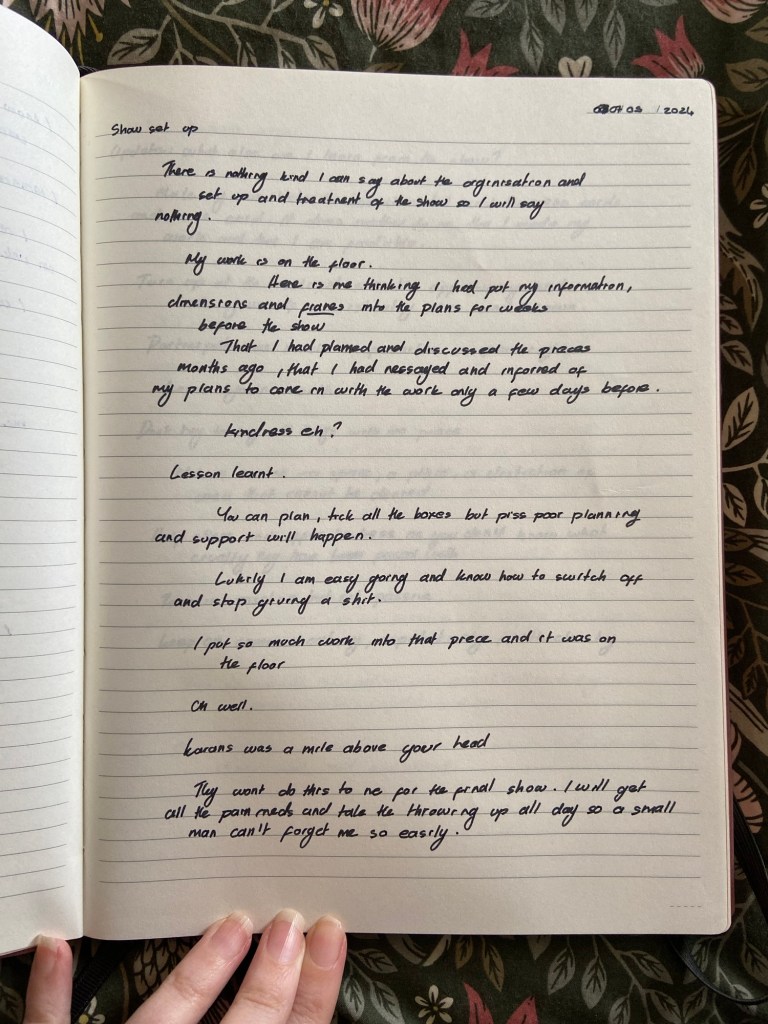 07 05 / 2024
Show set up
There is nothing kind I can say about the orginisation and
set up and treatment of the show so I will say
nothing.
My work is on the floor.
Here is me thinking I had put my information,
dimensions and frames into the plans for weeks
before the show
That I had planned and discussed the pieces
months ago, that I had messaged and informed of
my plans to come in with the work only a few days before.
kindness eh?
Lesson learnt.
You can plan, tick all the boxes but piss poor planning
and support will happen.
Lukily I am easy going and know how to switch off
and stop giving a shit.
I put so much work into that piece and it was on
the floor
Oh well.
karans was a mile above your head
They wont do this to me for the final show. I will get
all the pain meds and take the throwing up all day so a small
man can't forget me so easily.